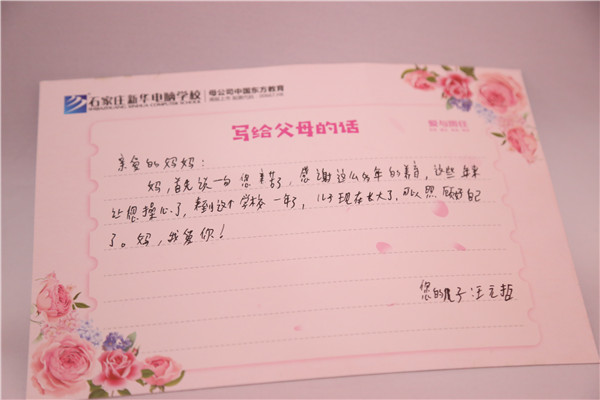 石家庄新华电脑学校
母公司中国东方教育
写给父母的话
爱与责任
亲爱的妈妈:
妈,首先说一句您辛苦了,感谢这么多年的养育,这些年来
让您操心了,来到这个学校一年了,儿子现在长大了,可以照顾好自己
了。妈,我爱你!
您的儿子:汪